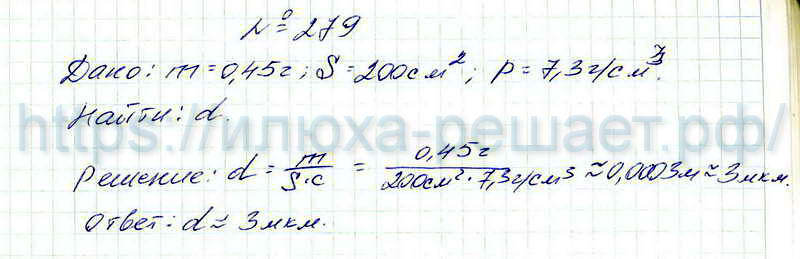 № 279
Дано: m = 0,45г; S = 200см²; p = 7,3г/см³.
Найти: d.
https://илюха-решает.рф/
Решение: d = m/(S·c) = 0,45г/(200см²·7,3г/см³) ≈ 0,0003м ≈ 3мкм.
Ответ: d ≈ 3мкм.